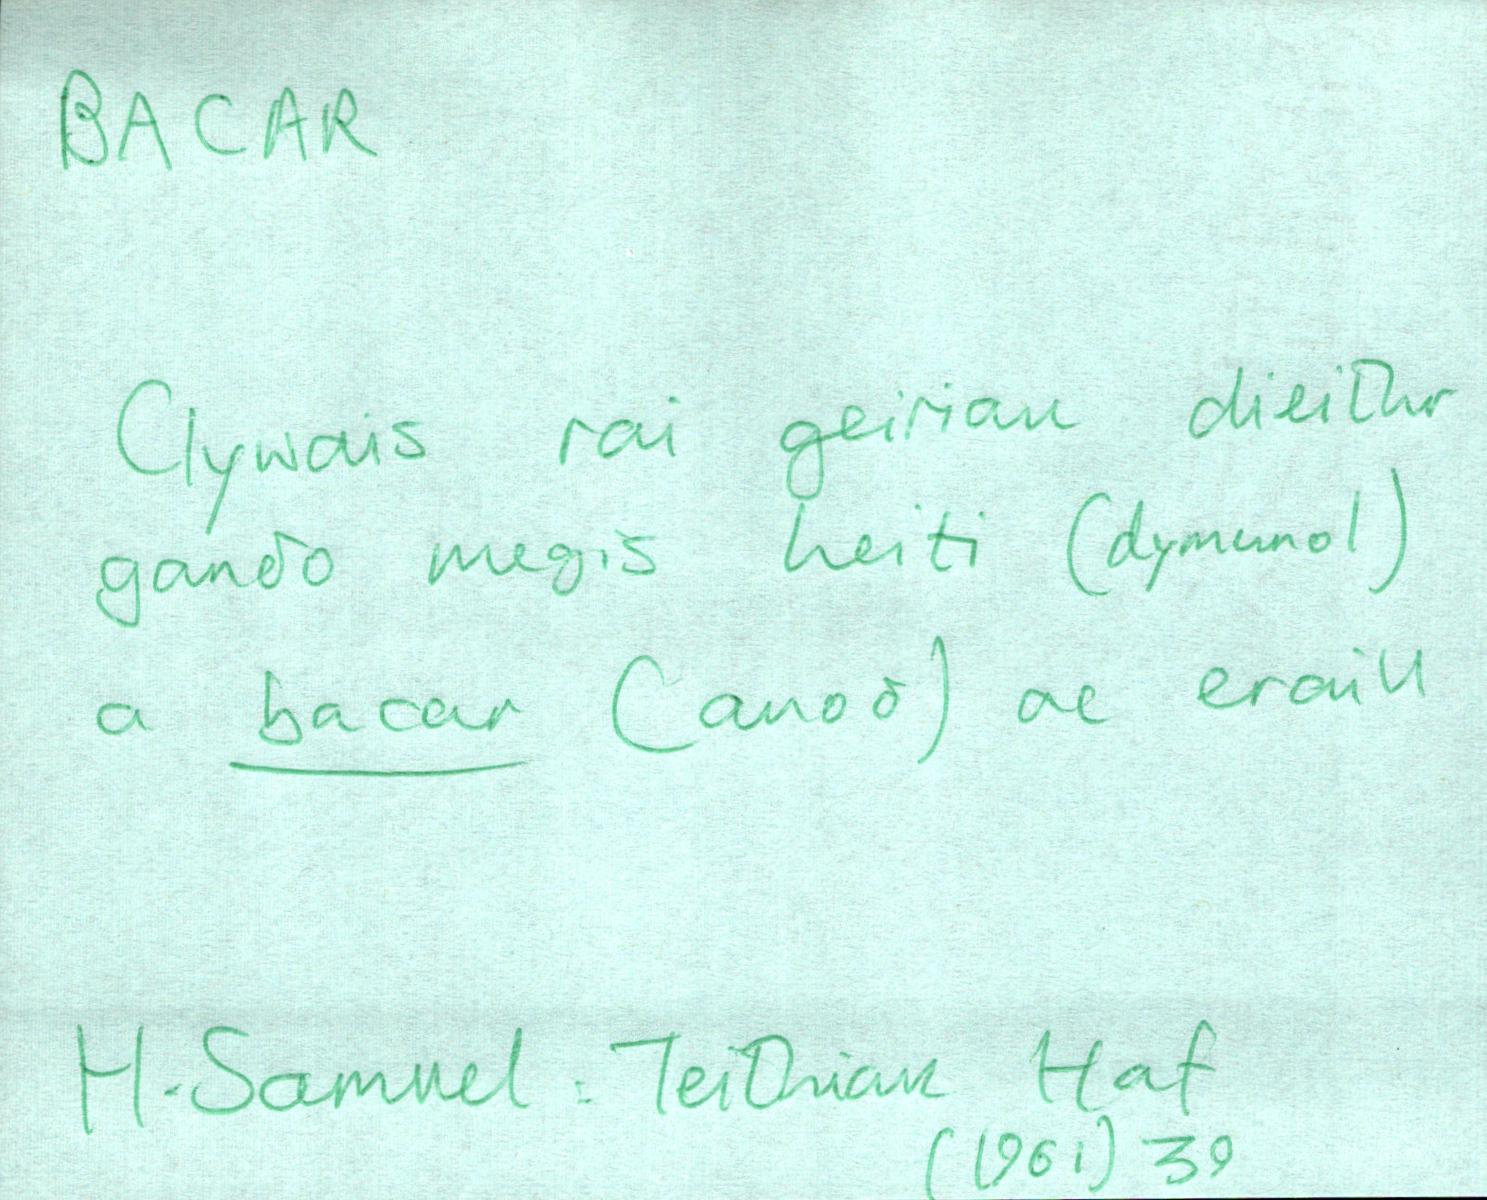 BACAR
Clywais rai geiriau dieithr
ganðo megis heiti (dymunol)
a bacar (anoð) ac eraill
H. Samuel : Teithiau Haf
(1961) 39